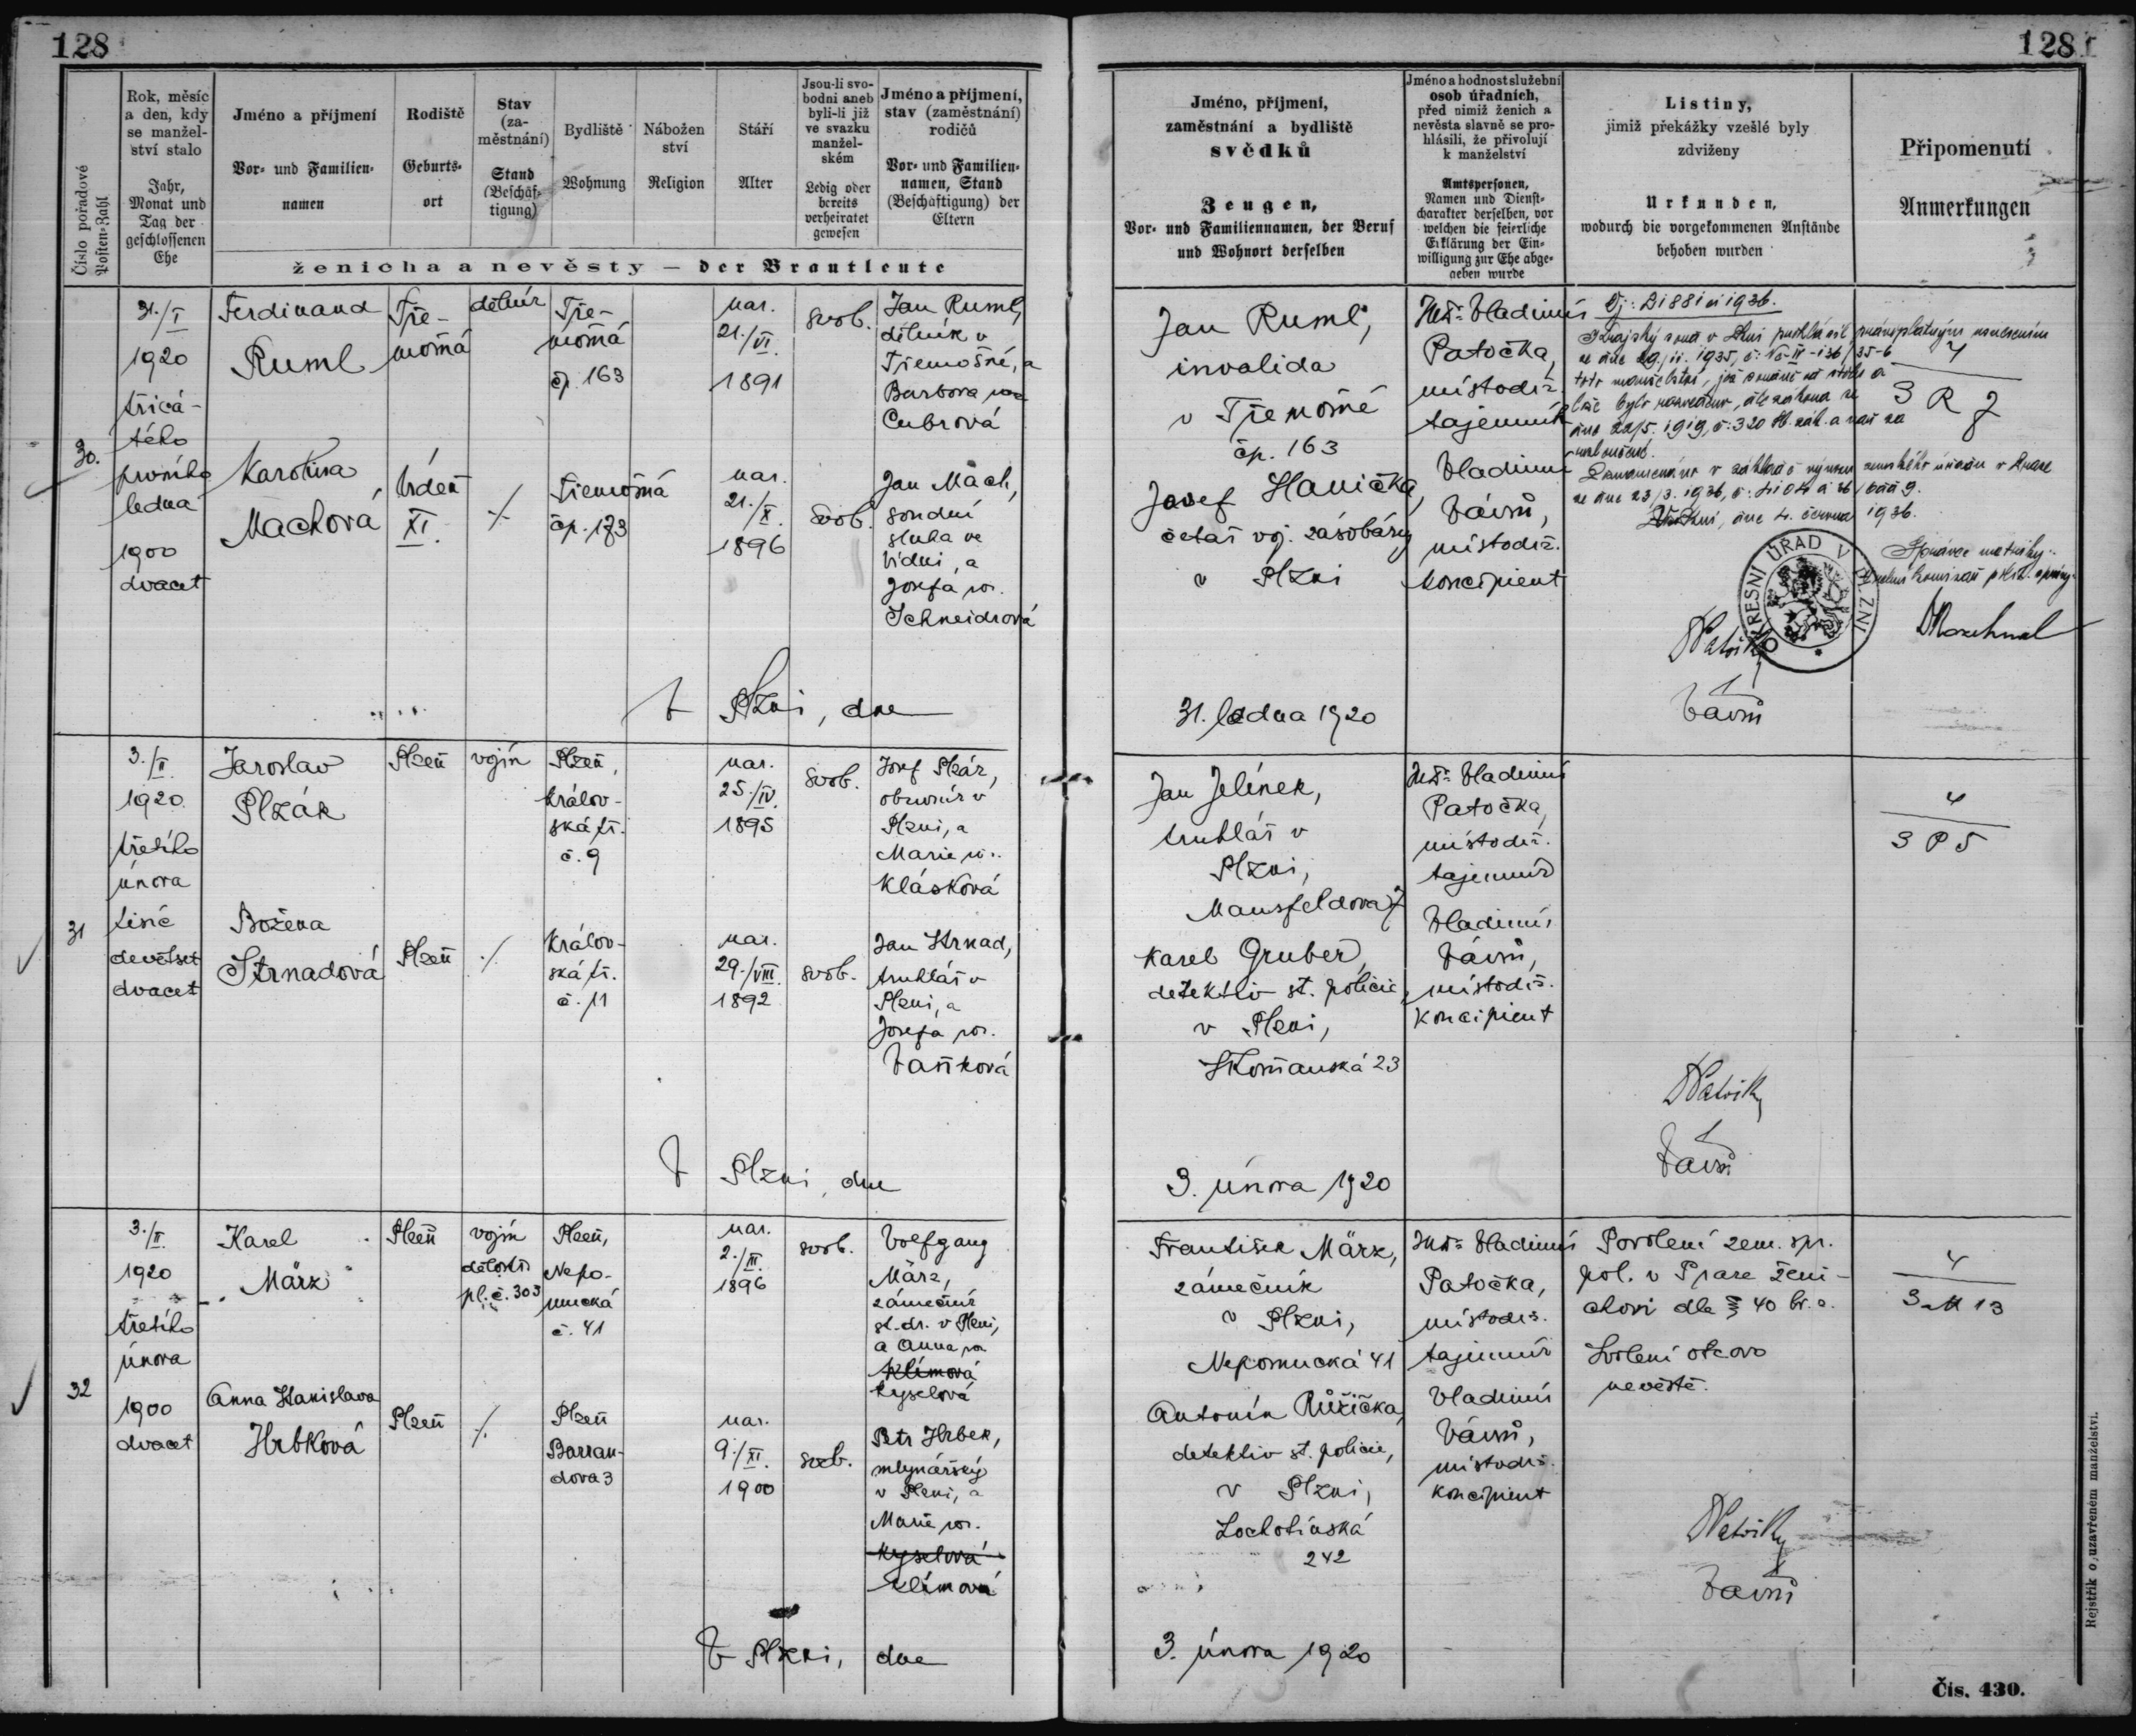 128
128
Číslo pořadové
Posten-Zahl
Rok, měsíc
a den, kdy
se manžel-
ství stalo
Jahr,
Monat und
Tag der
geschlossenen
Ehe
Jméno a příjmení
Vor- und Familien-
namen
Rodiště
Geburts-
ort
Stav
(za-
městnání)
Stand
(Beschäf-
tigung)
Bydliště
Wohnung
Nábožen
ství
Religion
Stáří
Alter
Jsou-li svo-
bodni aneb
byli-li již
ve svazku
manžel-
ském
Ledig oder
bereits
verheiratet
gewesen
Jméno a příjmení,
stav (zaměstnání)
rodičů
Vor- und Familien-
namen, Stand
(Beschäftigung) der
Eltern
ženicha a nevěsty — der Brautleute
Jméno, příjmení,
zaměstnání a bydliště
svědků
Zeugen,
Vor- und Familiennamen, der Beruf
und Wohnort derselben
Jméno a hodnost služební
osob úřadních,
před nimiž ženich a
nevěsta slavně se pro-
hlásili, že přivolují
k manželství
Amtspersonen,
Namen und Dienst-
charakter derselben, vor
welchen die feierliche
Erklärung der Ein-
willigung zur Ehe abge-
geben wurde
Listiny,
jimiž překážky vzešlé byly
zdviženy
Urkunden,
wodurch die vorgekommenen Anstände
behoben wurden
Připomenutí
Anmerkungen
30.
31./I
1920
třicá-
tého
prvního
ledna
1900
dvacet
Ferdinand
Ruml
Tře-
mošná
dělník
Tře-
mošná
čp. 163
nar.
21./VI.
1891
svob.
Jan Ruml,
dělník v
Třemošné, a
Barbora
Cubrová
Karolina
Machová
Vídeň
XI.
./.
Třemošná
čp. 173
nar.
21./X.
1896
svob.
Jan Mach,
soudní
sluha ve
Vídni, a
Josefa roz.
Schneidrová
V Plzni, dne
Jan Ruml,
invalida
v Třemošné
čp. 163
Josef Hanička,
četař voj. zásobárny
v Plzni
31. ledna 1920
JUDr. Vladimír
Patočka,
místodrž.
tajemník
Vladimír
Vávrů,
místodrž.
koncipient
Krajský soud v Plzni prohlásil pravoplatným usnesením
ze dne
toto manželství, jež
bylo rozvedeno, dle zákona ze
dne 22/5. 1919, č. 320 Sb. zák. a nař. za
rozloučené.
Zaznamenáno v základě výnosu zemského úřadu v Praze
ze dne 23/3. 1936,
V Plzni, dne 4. června 1936.
4
3 R 7
Správce matriky:
OKRESNÍ ÚŘAD V PLZNI
Vávrů
31
3./II.
1920
třetího
února
tisíc
devětset
dvacet
Jaroslav
Plzák
Plzeň
vojín
Plzeň,
Králov-
ská tř.
č. 9
nar.
25./IV.
1895
svob.
Josef Plzák,
obuvník v
Plzni, a
Marie roz.
Klásková
Božena
Strnadová
Plzeň
./.
Králov-
ská tř.
č. 11
nar.
29./VIII.
1892
svob.
Jan Strnad,
truhlář v
Plzni, a
Josefa roz.
Vaňková
V Plzni, dne
Jan Jelínek,
truhlář v
Plzni,
Mansfeldova 7
Karel Gruber,
detektiv st. policie
v Plzni,
Skvrňanská 23
3. února 1920
JUDr. Vladimír
Patočka,
místodrž.
tajemník
Vladimír
Vávrů,
místodrž.
koncipient
Vávrů
4
3 P 5
32
3./II.
1920
třetího
února
1900
dvacet
Karel
März
Plzeň
vojín
dělostř.
pl. č. 303
Plzeň,
Nepo-
mucká
č. 41
nar.
2./III.
1896
svob.
Wolfgang
März,
zámečník
st. dr. v Plzni,
a Anna roz.
Klímová
Kyselová
Anna Stanislava
Hrbková
Plzeň
./.
Plzeň
Barran-
dova 3
nar.
9./XI.
1900
svob.
Petr Hrbek,
mlynářský
v Plzni, a
Marie roz.
Kyselová
Klímová
V Plzni, dne
František März,
zámečník
v Plzni,
Nepomucká 41
Antonín Růžička,
detektiv st. policie,
v Plzni,
Lochotínská
242
3. února 1920
JUDr. Vladimír
Patočka,
místodrž.
tajemník
Vladimír
Vávrů,
místodrž.
koncipient
Povolení zem. spr.
pol. v Praze ženi-
chovi dle § 40 br. z.
Svolení otcovo
nevěstě.
Vávrů
4
3 M 13
Rejstřík o uzavřeném manželství.
Čís. 430.